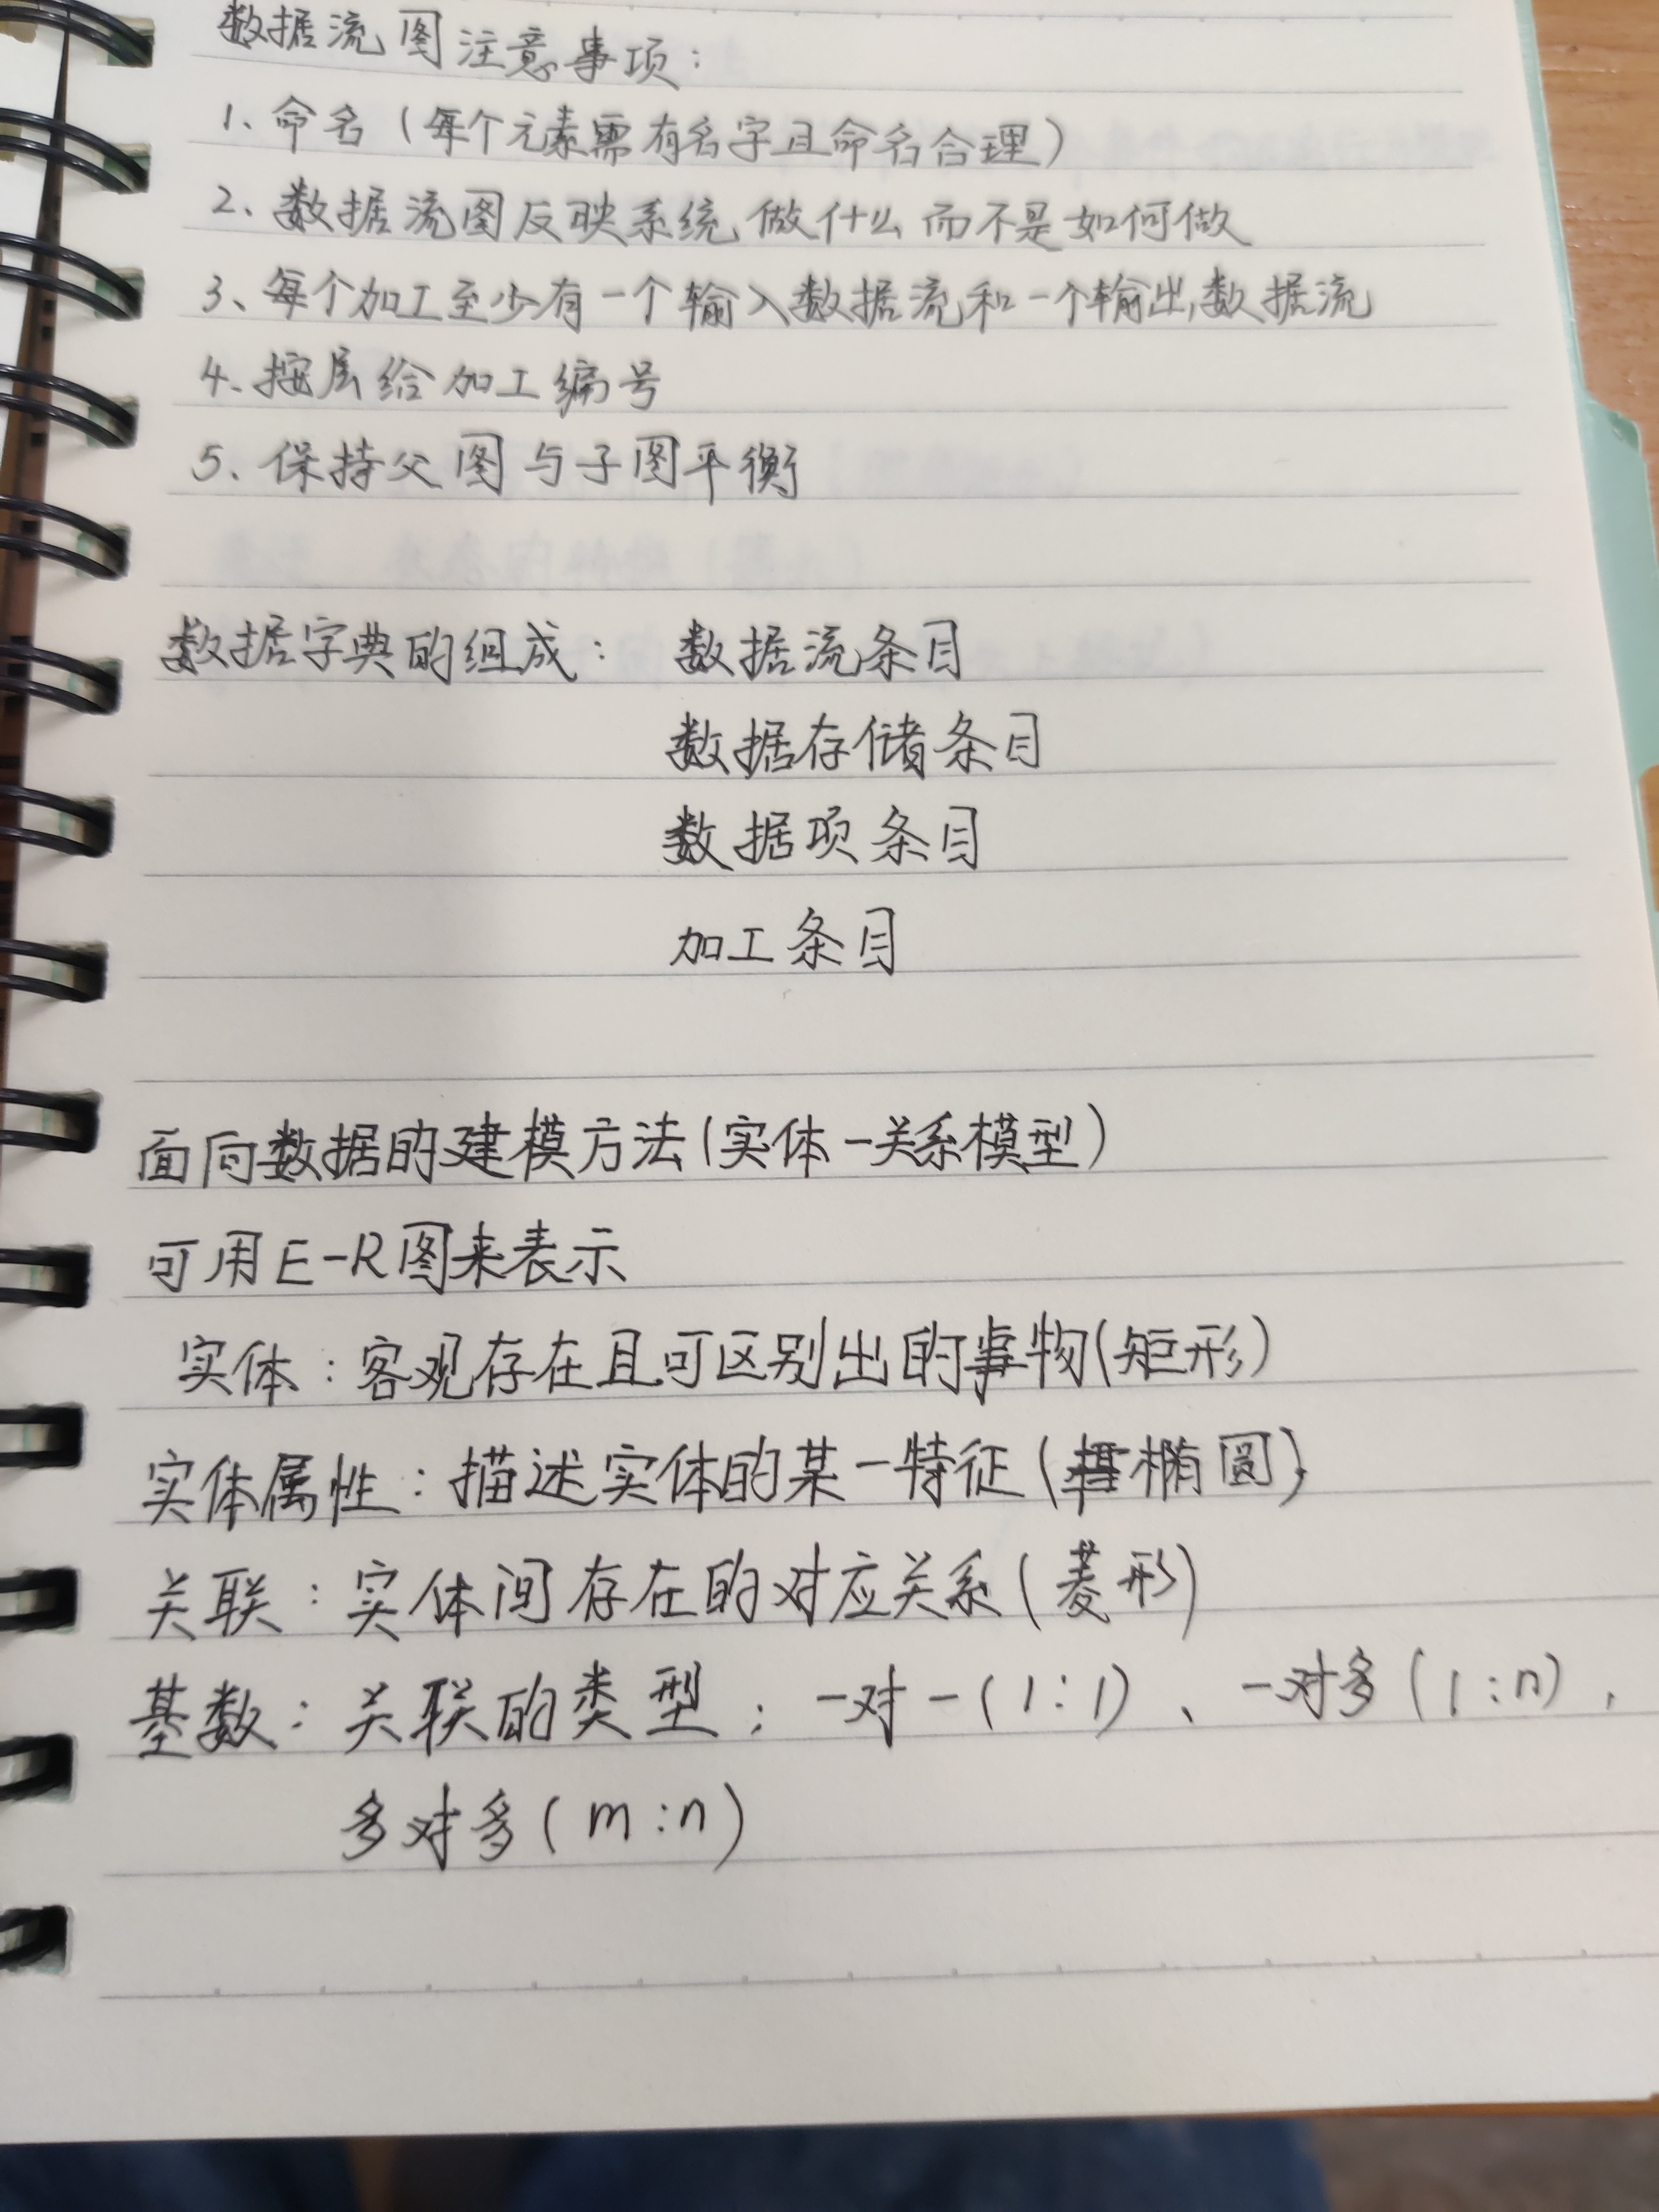 数据流图注意事项：
1、命名（每个元素需有名字且命名合理）
2、数据流图反映系统做什么而不是如何做
3、每个加工至少有一个输入数据流和一个输出数据流
4、按层给加工编号
5、保持父图与子图平衡
数据字典的组成：数据流条目
数据存储条目
数据项条目
加工条目
面向数据的建模方法（实体-关系模型）
可用E-R图来表示
实体：客观存在且可区别出的事物（矩形）
实体属性：描述实体的某一特征（椭圆）
关联：实体间存在的对应关系（菱形）
基数：关联的类型；一对一（1:1）、一对多（1:n）、
多对多（m:n）